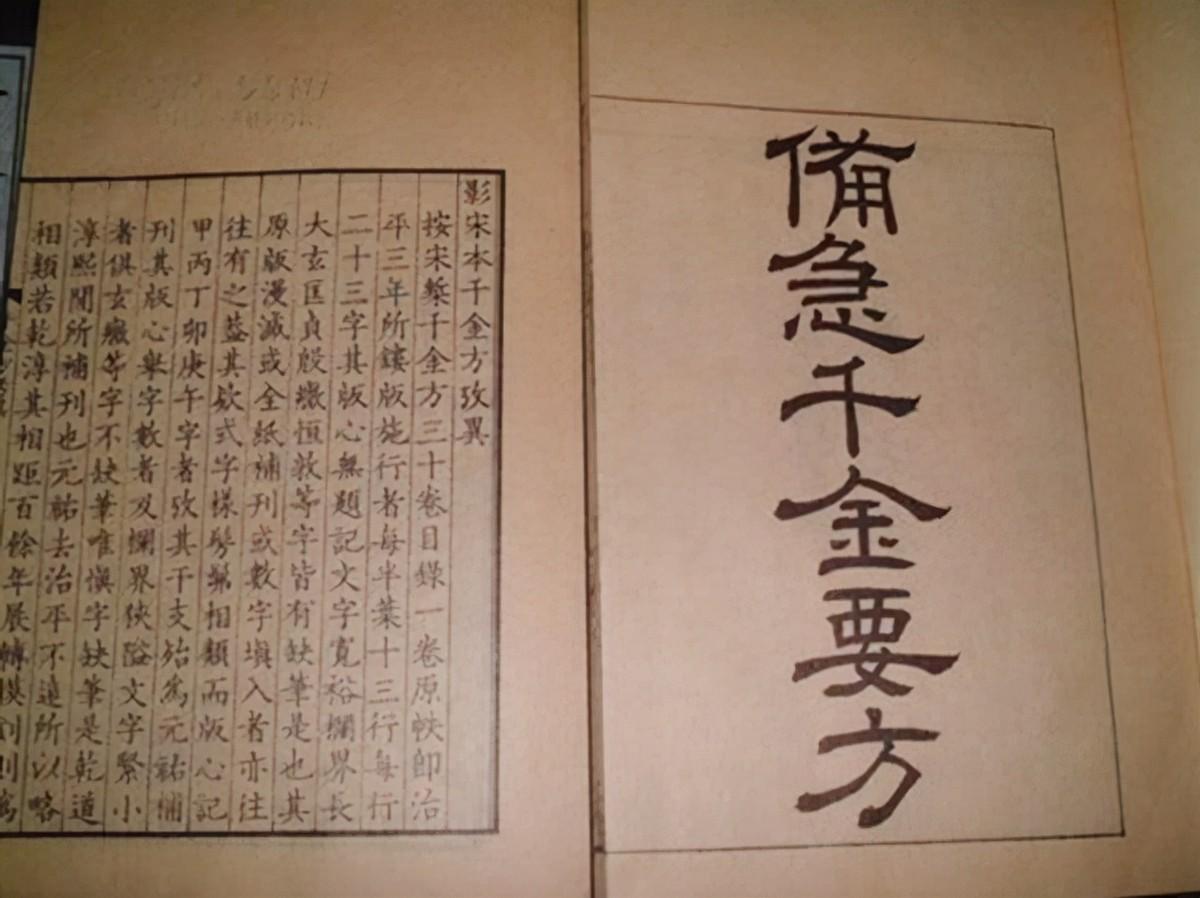 備急千金要方
影宋本千金方攷異
按宋槧千金方三十卷目錄一卷原帙即治
平三年所鏤版施行者每半葉十三行每行
二十三字其版心無題記文字寬裕欄界長
大玄匡貞殷徵恒敦等字皆有缺筆是也其
原版漫滅或全紙補刊或數字塡入者亦往
往有之蓋其欵式字樣髣髴相類而版心記
甲丙丁卯庚午字者攷其干支殆爲元祐補
刊其版心舉字數者及欄界狹隘文字緊小
者俱玄徵等字不缺筆唯愼字缺筆是乾道
淳熙間所補刊也元祐去治平不遠所以略
相類若乾淳其相距百餘年展轉摸刻則寫